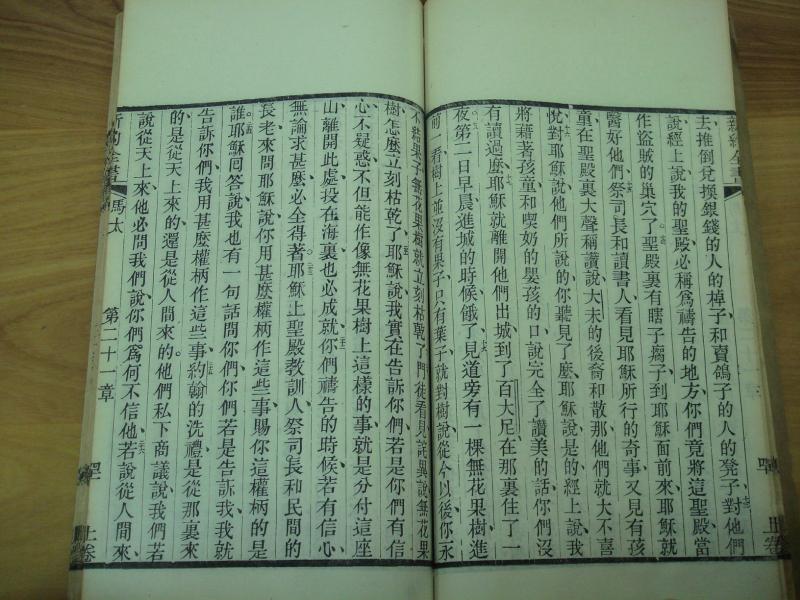 新約全書
去、推倒兌換銀錢的人的棹子、和賣鴿子的人的凳子、對他們
說、經上說、我的聖殿、必稱爲禱告的地方、你們竟將這聖殿、當
作盜賊的巢穴了。聖殿裏有瞎子瘸子、到耶穌面前來、耶穌就
醫好他們。祭司長和讀書人、看見耶穌所行的奇事、又見有孩
童在聖殿裏大聲稱讚說、大未的後裔和散那、他們就大不喜
悅、對耶穌說、他們所說的、你聽見了麼、耶穌說、是的、經上說、我
將藉著孩童和喫奶的嬰孩的口、說完全了讚美的話、你們沒
有讀過麼。耶穌就離開他們、出城到了百大尼、在那裏住了一
夜。第二日早晨、進城的時候、餓了。見道旁有一棵無花果樹、進
前一看、樹上並沒有果子、只有葉子、就對樹說、從今以後、你永
不結果子、無花果樹就立刻枯乾了。門徒看見、詫異說、無花果
樹怎麼立刻枯乾了。耶穌說、我實在告訴你們、若是你們有信
心、不疑惑、不但能作像無花果樹上這樣的事、就是分付這座
山、離開此處、投在海裏、也必成就。你們禱告的時候、若有信心、
無論求甚麼、必全得著。耶穌上聖殿教訓人、祭司長和民間的
長老來問耶穌說、你用甚麼權柄作這些事、賜你這權柄的是
誰。耶穌回答說、我也有一句話問你們、你們若是告訴我、我就
告訴你們、我用甚麼權柄作這些事。約翰的洗禮、是從那裏來
的、是從天上來的、還是從人間來的。他們私下商議說、我們若
說從天上來、他必問我們說、你們爲何不信他。若說從人間來、
新約全書 馬太 第二十一章 上卷